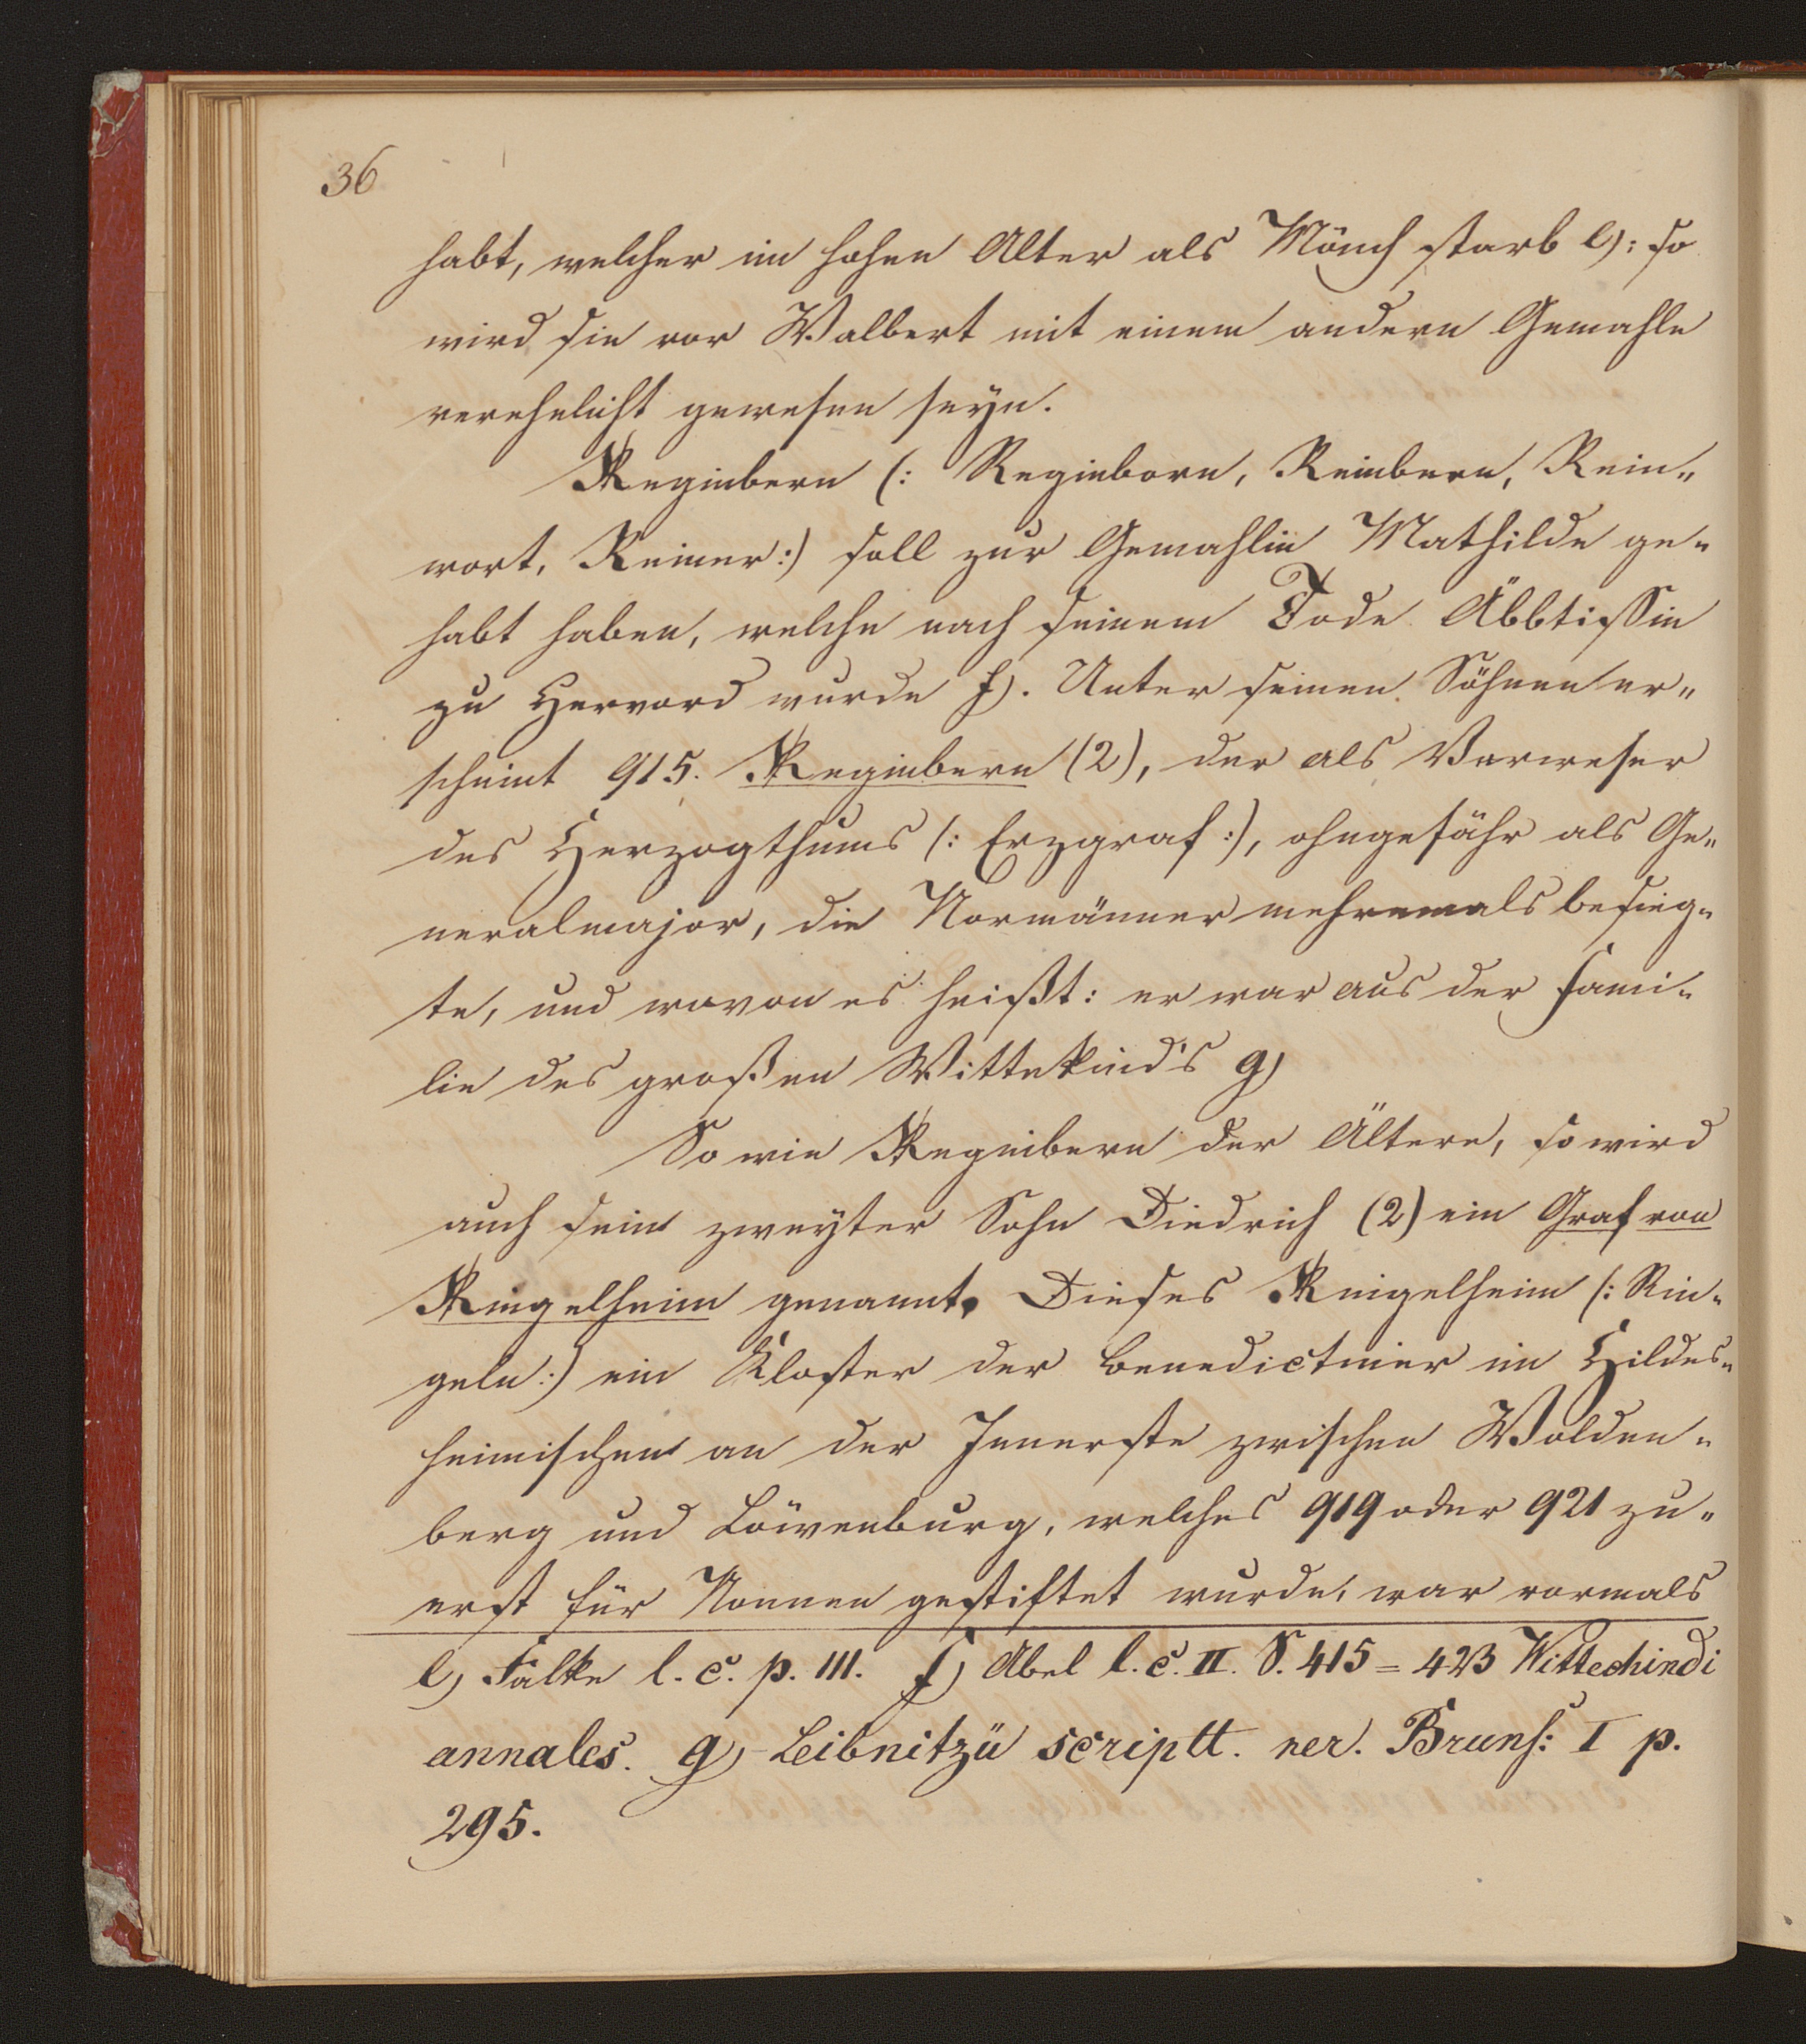 36
habt, welcher im hohen Alter als Mönch starb e): so
wird sie vor Walbert mit einem andern Gemahle
verehelicht gewesen seyn.
Reginbern (: Reginborn, Reinbern, Rein„
wort, Reiner:) soll zur Gemahlin Mathilde ge„
habt haben, welche nach seinem Tode Äbbtissin
zu Hervord wurde f). Unter seinen Söhnen er„
scheint 915. Reginbern (2), der als Verweser
des Herzogthums (: Erzgraf :), ohngefähr als Ge„
neralmajor, die Normänner mehremals besieg„
te, und wovon es heißt: er war aus der Fami„
lie des großen Wittekind's g)
So wie Reginbern der Ältere, so wird
auch sein zweyter Sohn Diedrich (2) ein Graf von
Ringelheim genannt. Dieses Ringelheim (: Rin„
geln:) ein Kloster der Benedictiner im Hildes„
heimischen an der Innerste zwischen Wolden„
berg und Löwenburg, welches 919 oder 921 zu„
erst für Nonnen gestiftet wurde, war vormals
e) Falke l. c. p. 111. f) Abel l. c. II. S. 415 = 423 Wittechindi
annales. g) Leibnitzii scriptt. rer. Bruns: I p.
295.